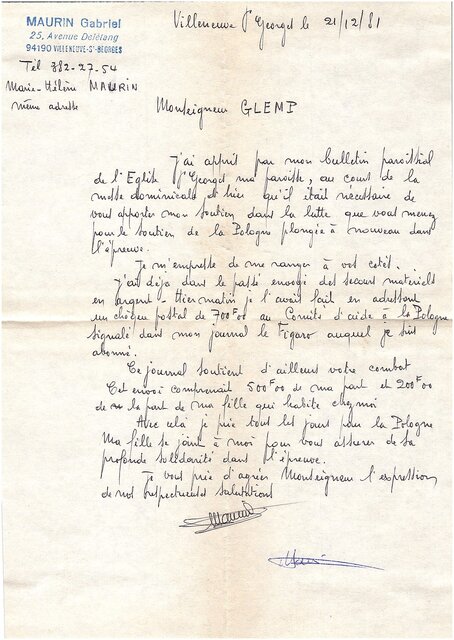 MAURIN Gabriel
25, Avenue Delétang
94190 VILLENEUVE-ST-GEORGES
Tél 382-27-54
Marie-Hélène MAURIN
même adresse
Villeneuve St Georges le 21/12/81
Monseigneur GLEMP
J'ai appris par mon bulletin paroissial
de l'Eglise St Georges ma paroisse, au cours de la
messe dominicale d'hier qu'il était nécessaire de
vous apporter mon soutien dans la lutte que vous menez
pour le soutien de la Pologne plongée à nouveau dans
l'épreuve.
Je m'empresse de me ranger à vos cotés.
J'ai déja dans le passé envoyé des secours matériels
en argent - Hier matin je l'avais fait en adressant
un chèque postal de 700F00 au Comité d'aide à la Pologne
signalé dans mon journal le Figaro auquel je suis
abonné.
Ce journal soutient d'ailleurs votre combat
Cet envoi comprenait 500F00 de ma part et 200F00
de la part de ma fille qui habite chez moi
Avec cela je prie tous les jours pour la Pologne
Ma fille se joint à moi pour vous assurer de sa
profonde solidarité dans l'épreuve.
Je vous prie d'agréer Monseigneur l'expression
de nos respectueuses salutations
Maurin